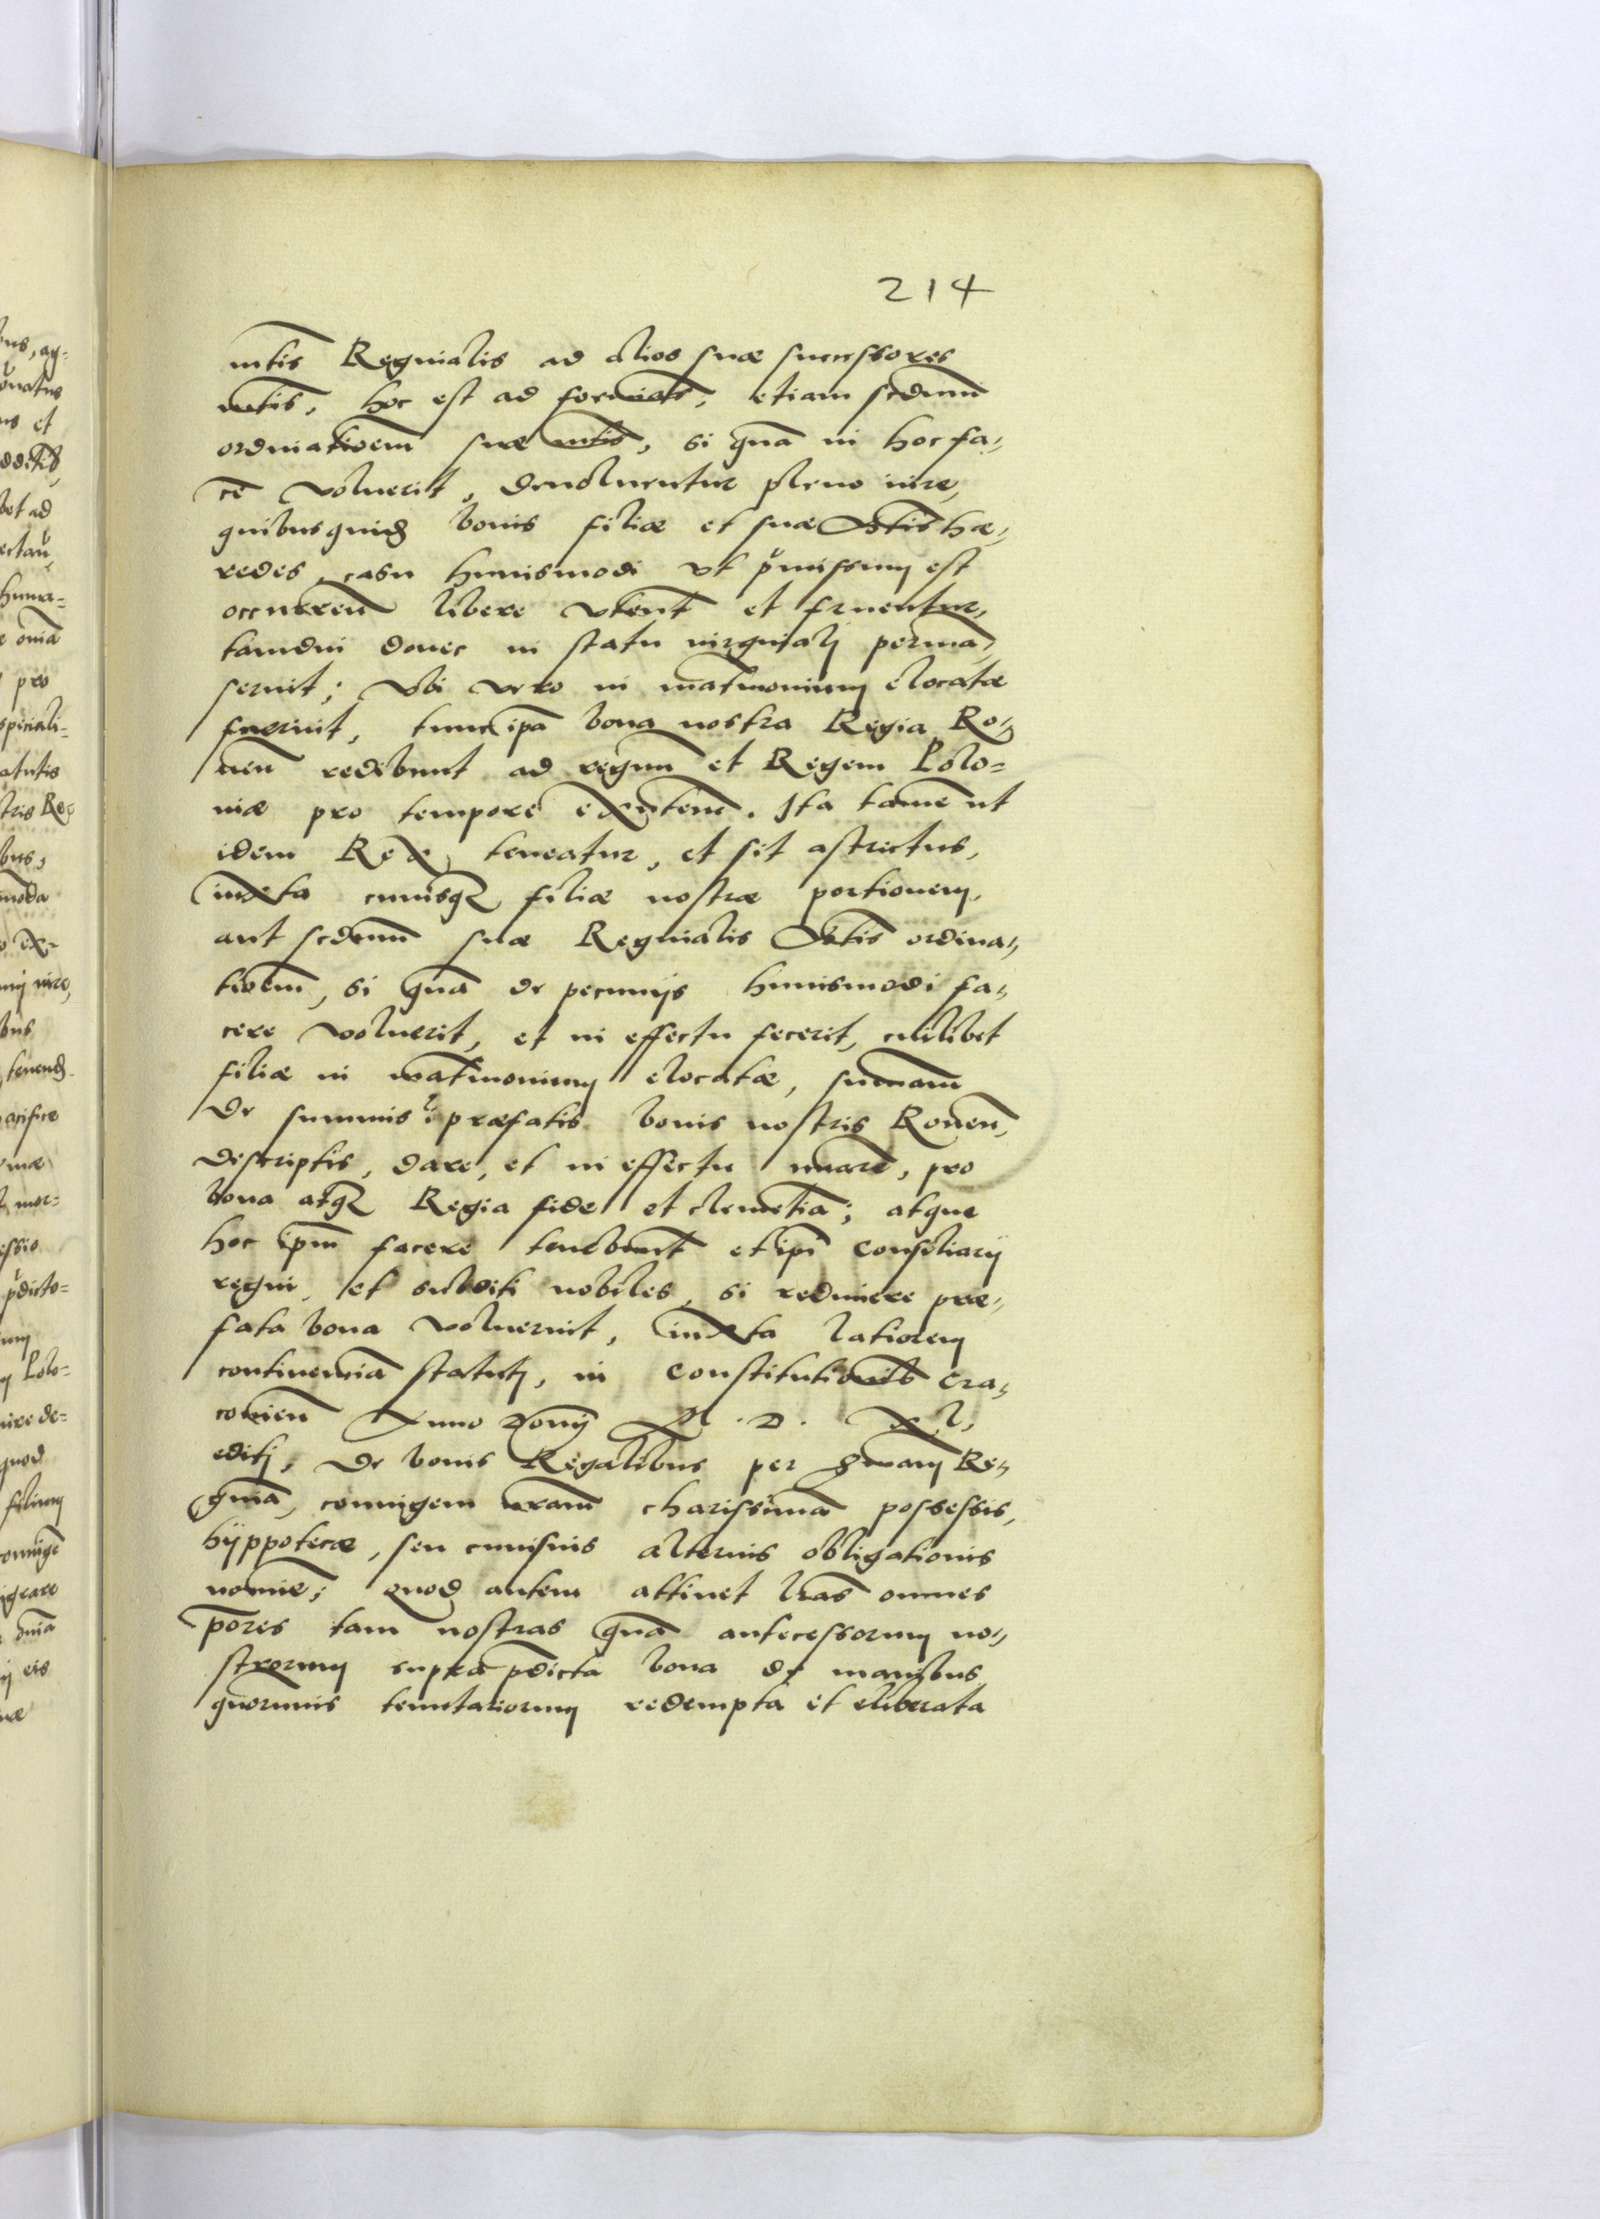 214
mtis Reginialis ad alios suæ successores
mtis, hoc est ad foemiās, etiam scdum
ordinatioem suæ mtis, si quā in hoc fa„
cē voluerit, devoluentur pleno iure,
quibusquidē bonis filiæ et suæ Mtis hæ„
redes, casu huiusmodi vt p̄missum est
occurreñ libere vtent̄ et fruentur,
tamdiu donec in statu virginali perma„
serint; Vbi vero in mat̄rimonium elocatæ
fuerint, tunc ip̄a bona nostra Regia Ro„
ueñ redibunt ad regnū et Regem Polo=
niæ pro tempore existenē. Ita tamē ut
idem Rex teneatur, et sit astrictus,
iuxta cuiusq₃ filiæ nostræ portionem,
aut scdum suæ Reginalis Mtis ordina„
tioem, si quā de pecunijs huiusmodi fa„
cere voluerit, et in effectu fecerit, cuilibet
filiæ in mat̄rimonium elocatæ, summam
de summis ī præfatis bonis nostris Roueñ,
descriptis, dare, et in effectu nūarē, pro
bona atq₃ Regia fide et clemētia; atque
hoc ip̄m facere tenebunt̄ et ip̄i Consiliarij
regni, et subditi nobiles, si redimere præ„
fata bona voluerint, iuxta latiorem
continentiā statuti, in constitutionib cra„
couieñ Anno Domi M. D. XL,
editi, De bonis Regalibus per Smam Re„
ginā, coniugem nr̄am charissimā possessis,
hyppotecæ, seu cuiusuis alterius obligationis
nomie; quod autem attinet lrās omnes
p̄ores tam nostras quā antecessorum no„
strorum supra p̄dicta bona de manibus
quorumuis tenutariorum redempta et eliberata